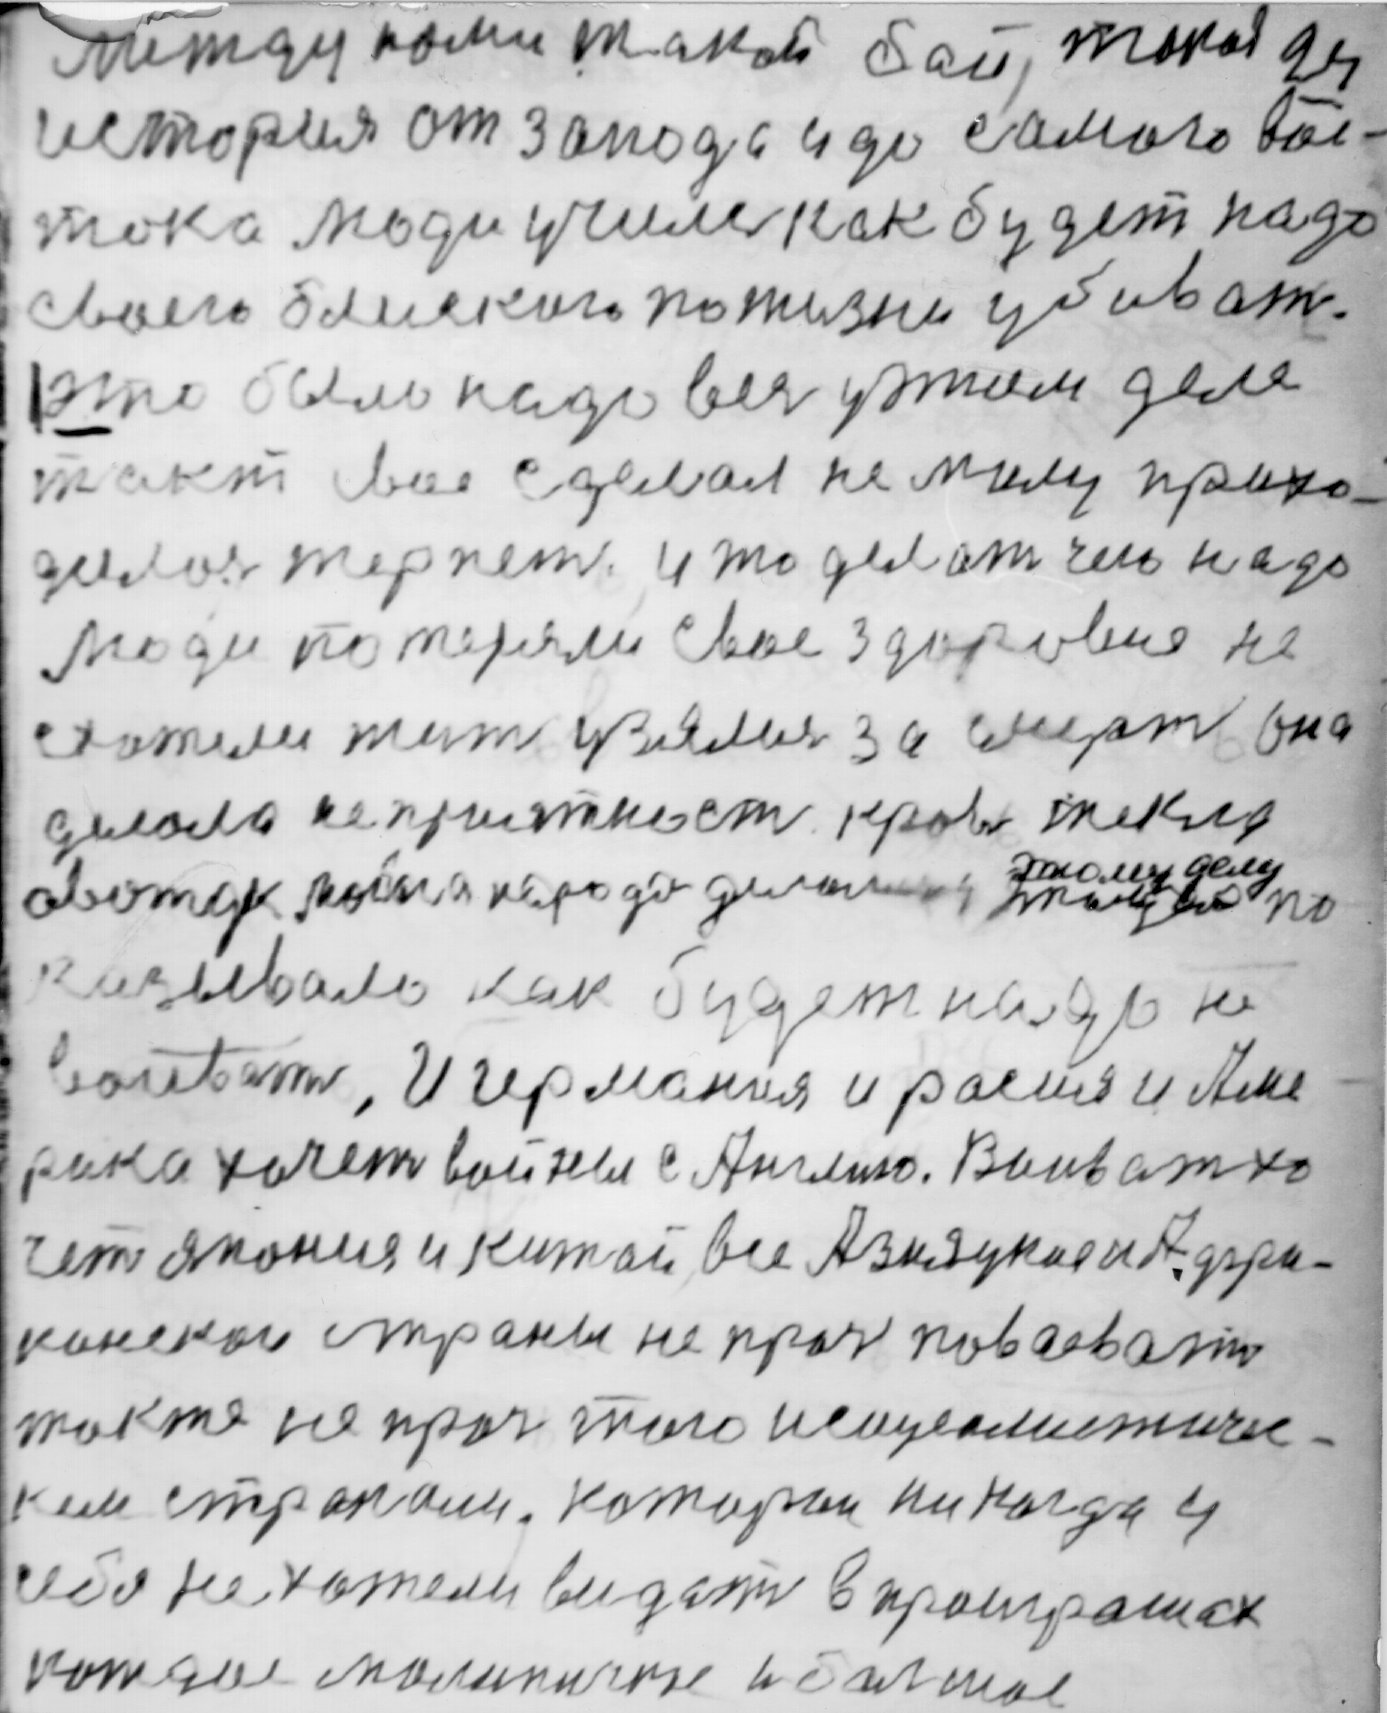 между ними такой бой, такая
история от запода и до самого вос-
тока люди учились как будет надо
своего блиского по жизни убиват.
Это было надо всея у этом деле
такт свое сделал не милу прихо-
делося терпет. и то делат чего надо
люди потеряли свое здоровие не
схотели жит узялися за смерт она
делала неприятност. кровь текла
авотак война народа этому делу по
казывало как будет надо не
воеват, И германия и расия и Аме
рика хочет войны с Англию. Воиват хо
чет япония и китай, все Азия и Афри-
канскои страны не проч повоеват
также не проч того исоцеалистичес-
ким странам. которыи никогда у
себя не хотели видат в проиграшах
кождое маленичкое и балшое